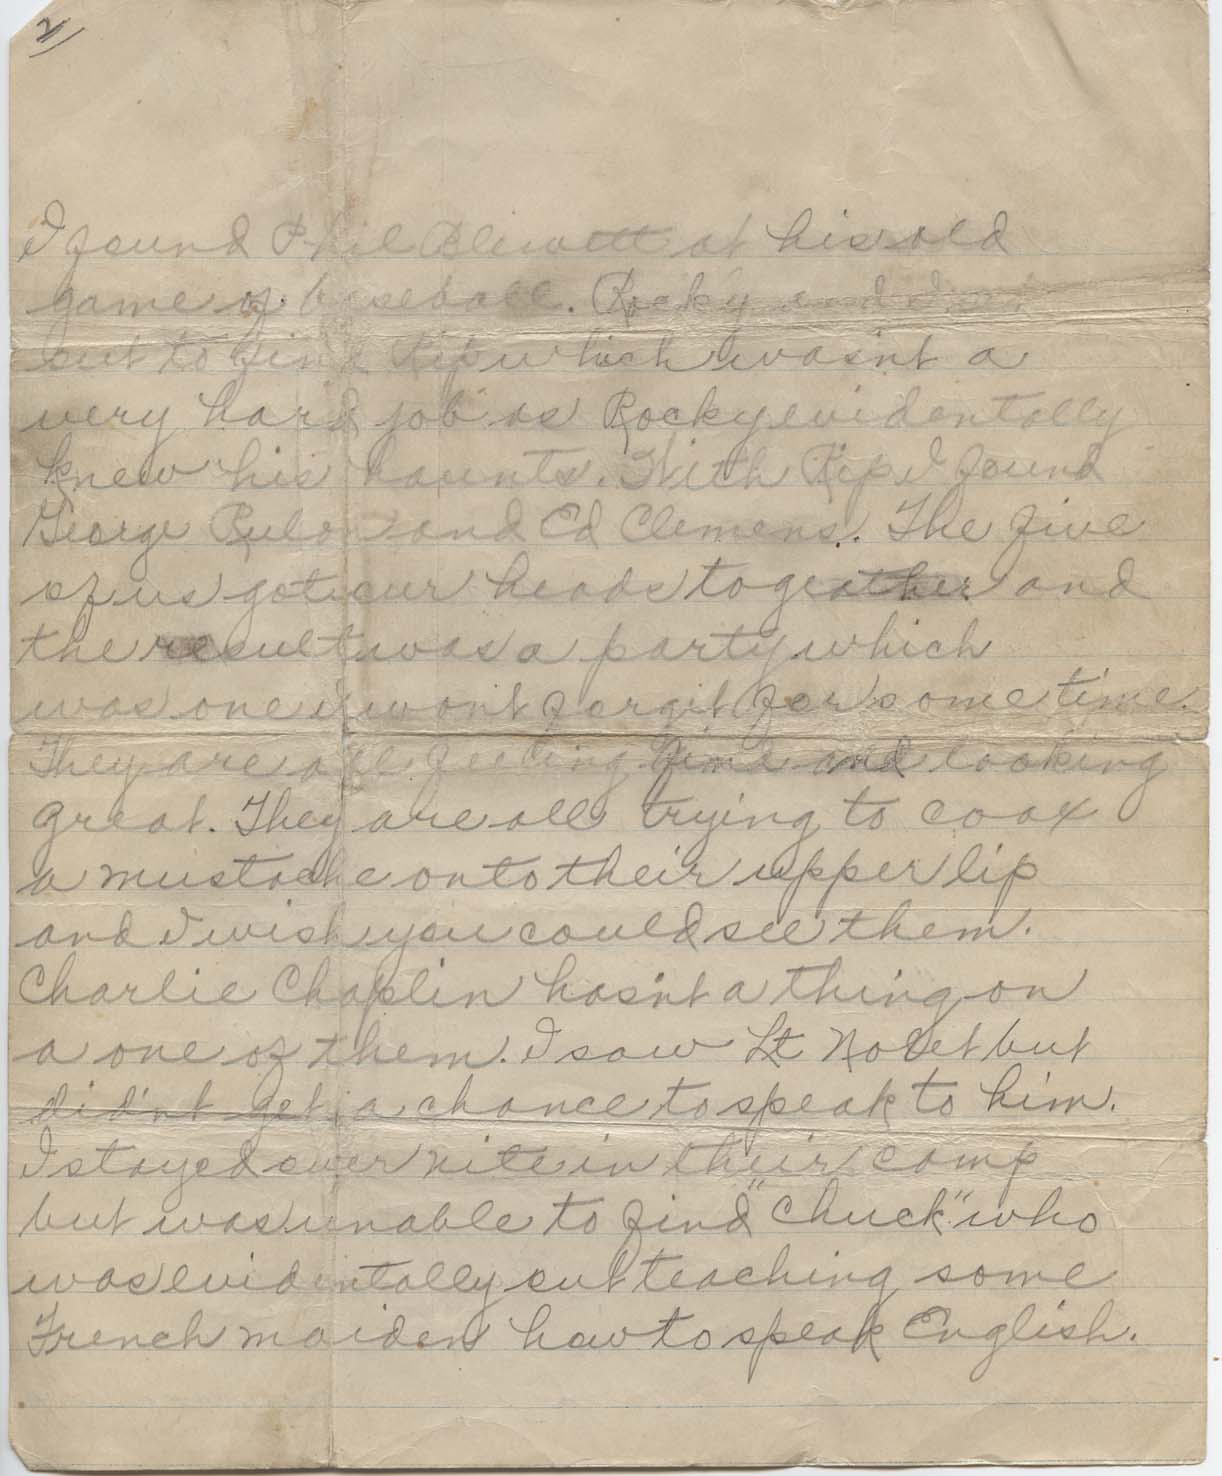 2)
I found Phil Blewett at his old
game of baseball. Rocky and I set
out to find Rip which wasn't a
very hard job as Rocky evidentally
knew his haunts. With Rip I found
George Rulon and Ed Clemens. The five
of us got our heads togeather and
the result was a party which
was one I wont forgit for some time.
They are all feeling fine and looking
great. They are all trying to coax
a mustache onto their upper lip
and I wish you could see them.
Charlie Chaplin hasn't a thing on
a one of them. I saw Lt. but
did'nt get a chance to speak to him.
I stayed over nite in their camp
but was unable to find "Chuck" who
was evidentally out teaching some
French maiden how to speak English.